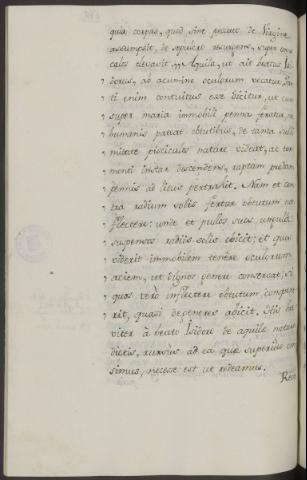 quia corpus, quod sine peccato de Virgine
assumpsit, de sepulcro resurgens, super om̄s
caelos elevavit. „ Aquila, ut ait beatus Isi-
„ dorus, ab acumine oculorum vocatur. Tan-
„ ti enim contuitus esse dicitur, ut cum
„ super maria immobili penna feratur, nec
„ humanis pateat obtutibus, de tanta subli-
„ mitate pisciculos natare videat, ac tor-
„ menti instar descendens, raptam prædam
„ pennis ad litus pertrahit. Nam et con-
„ tra radium solis fertur obtutum non
„ flectere: unde et pullos suos ungula
„ suspensos radiis solis obicit; et quos
„ viderit immobilem tenere oculorum
„ aciem, ut dignos genere conservat; si
„ quos vero inflectere obtutum, compe-
„ rit, quasi degeneres abicit. Ita bre-
viter a beato Isidoro de aquila notata
dictis, rursus ad ea quæ superius om̄
simus, necesse est ut redeamus.